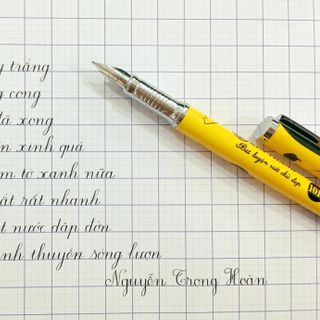 trắng
cong
đã xong
xinh quá
tơ xanh nữa
rất nhanh
nước dập dờn
quanh thuyền sóng lượn
Nguyễn Trọng Hoàn
Bút luyện viết chữ đẹp